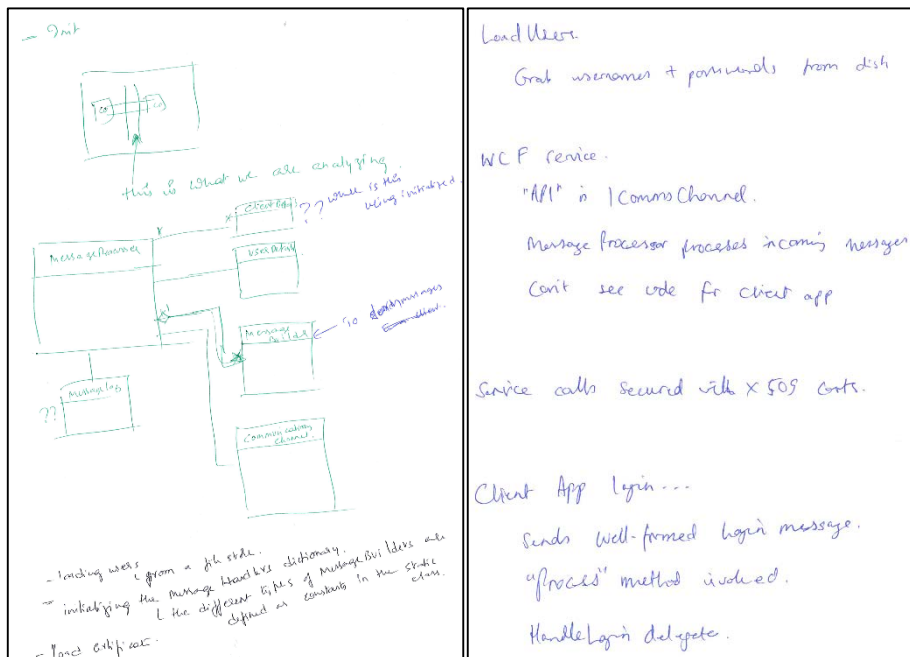 - Init
this is what we are analyzing.
Client App
?? where is this
being initialized.
User Details
Message
Builder
MessageLog
??
Communication
Channel.
- loading users from a file store.
- initializing the message handlers dictionary.
the different types of MessageBuilders are
defined as constants in the static
class.
- load certificate.
Load Users.
Grab usernames + passwords from disk
WCF service.
"API" is ICommsChannel.
Message Processor processes incoming messages
Can't see code for client app
Service calls secured with X509 certs.
Client App login...
Sends well-formed login message.
"Process" method invoked.
HandleLogin delegate.